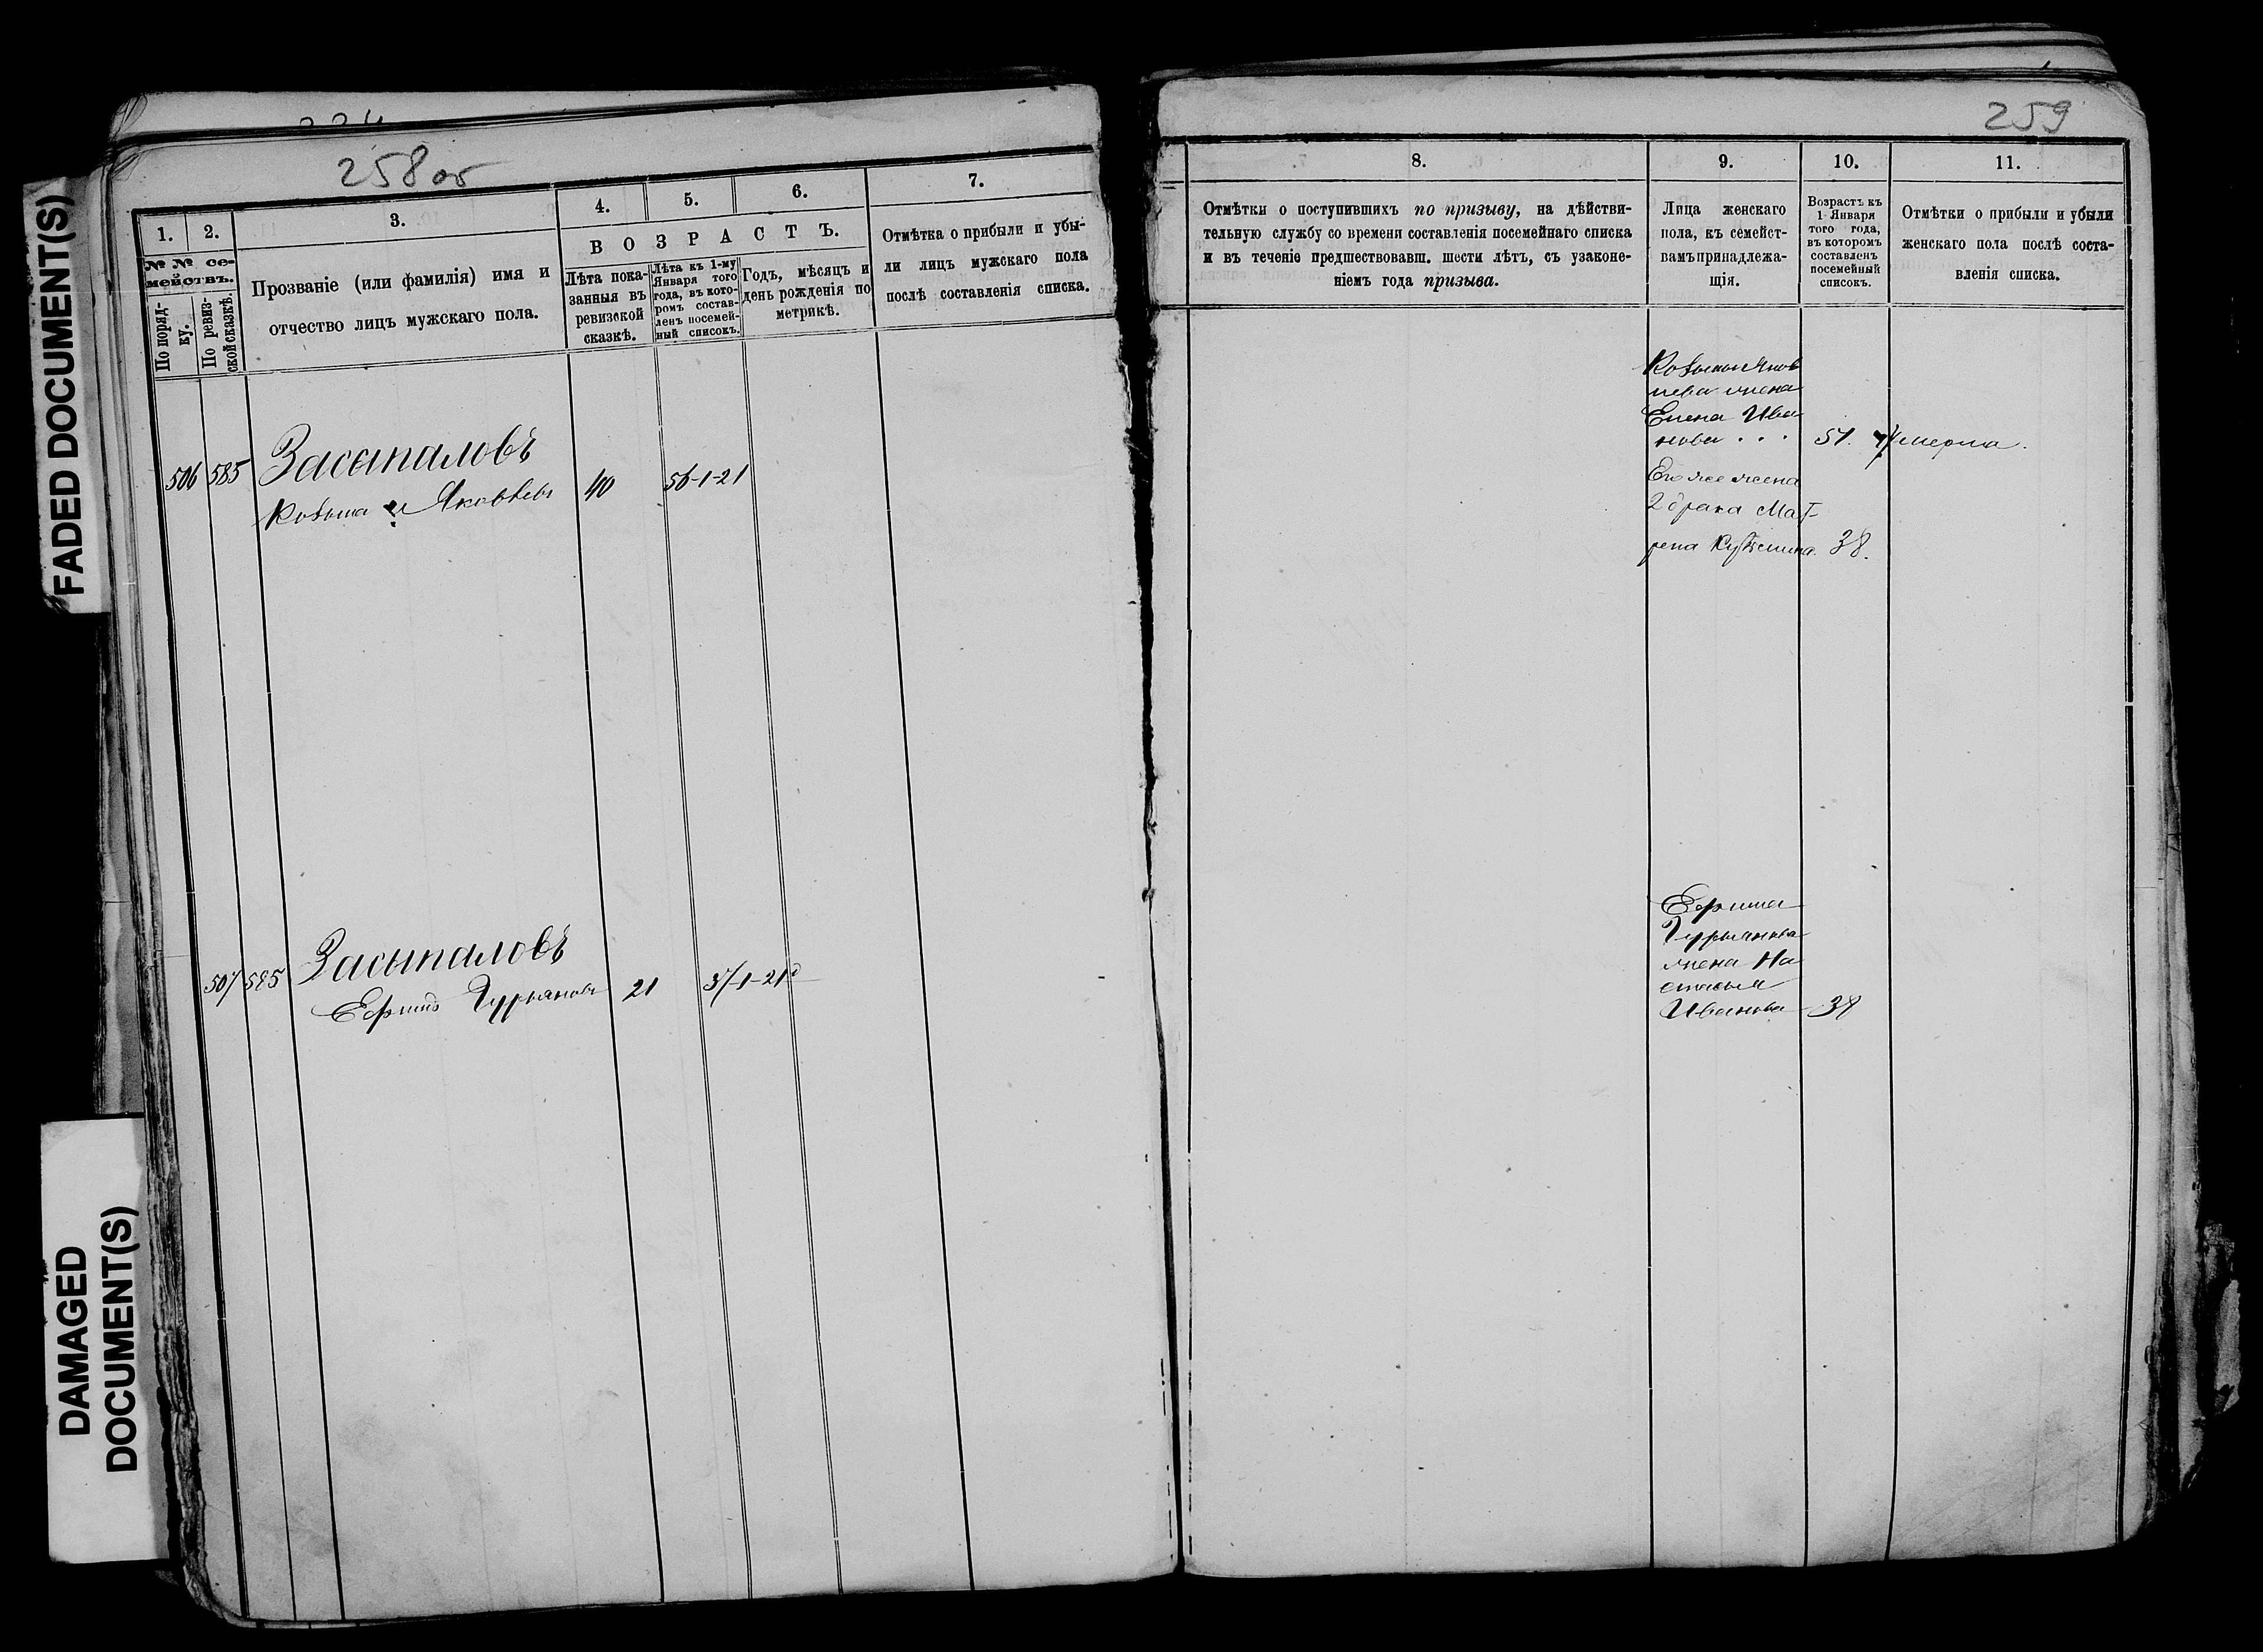 FADED DOCUMENT(S)
DAMAGED
DOCUMENT(S)
258об
1.
2.
3.
4.
5.
6.
7.
№ № се-
мействъ.
По поряд-
ку.
По ревиз-
ской сказкѣ.
Прозваніе (или фамилія) имя и
отчество лицъ мужскаго пола.
ВОЗРАСТЪ.
Лѣта пока-
занныя въ
ревизской
сказкѣ.
Лѣта къ 1-му
Января того
года, въ кото-
ромъ состав-
ленъ посемей-
ный списокъ.
Годъ, мѣсяцъ и
день рожденія по
метрикѣ.
Отмѣтка о прибыли и убы-
ли лицъ мужскаго пола
послѣ составленія списка.
506 585 Засыпаловъ
Козьма Яковлевъ 40 56-1-21
507 585 Засыпаловъ
Ефимъ Гурьяновъ 21 37-1-21
259
8.
9.
10.
11.
Отмѣтки о поступившихъ по призыву, на дѣйстви-
тельную службу со времени составленія посемейнаго списка
и въ теченіе предшествовавш. шести лѣтъ, съ узаконе-
ніемъ года призыва.
Лица женскаго
пола, къ семейст-
вамъ принадлежа-
щія.
Возрастъ къ
1 Января
того года,
въ которомъ
составленъ
посемейный
списокъ.
Отмѣтки о прибыли и убыли
женскаго пола послѣ соста-
вленія списка.
Козьмы Яков
лева жена
Елена Ива-
нова . . . 51. Умерла.
Его же жена
2 брака Мат-
рена 38.
Ефима
Гурьянова
жена На
стасья
Иванова 38